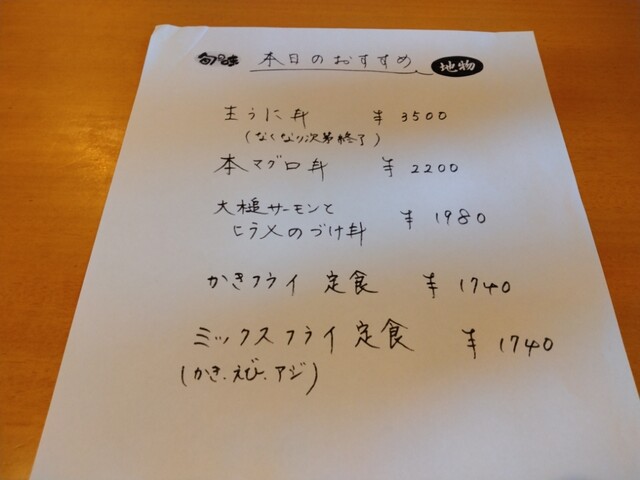 本日のおすすめ 地物
生うに丼 ¥3500
(なくなり次第終了)
本マグロ丼 ¥2200
大槌サーモンと
ヒラメのづけ丼 ¥1980
かきフライ 定食 ¥1740
ミックスフライ定食 ¥1740
(かき.えび.アジ)